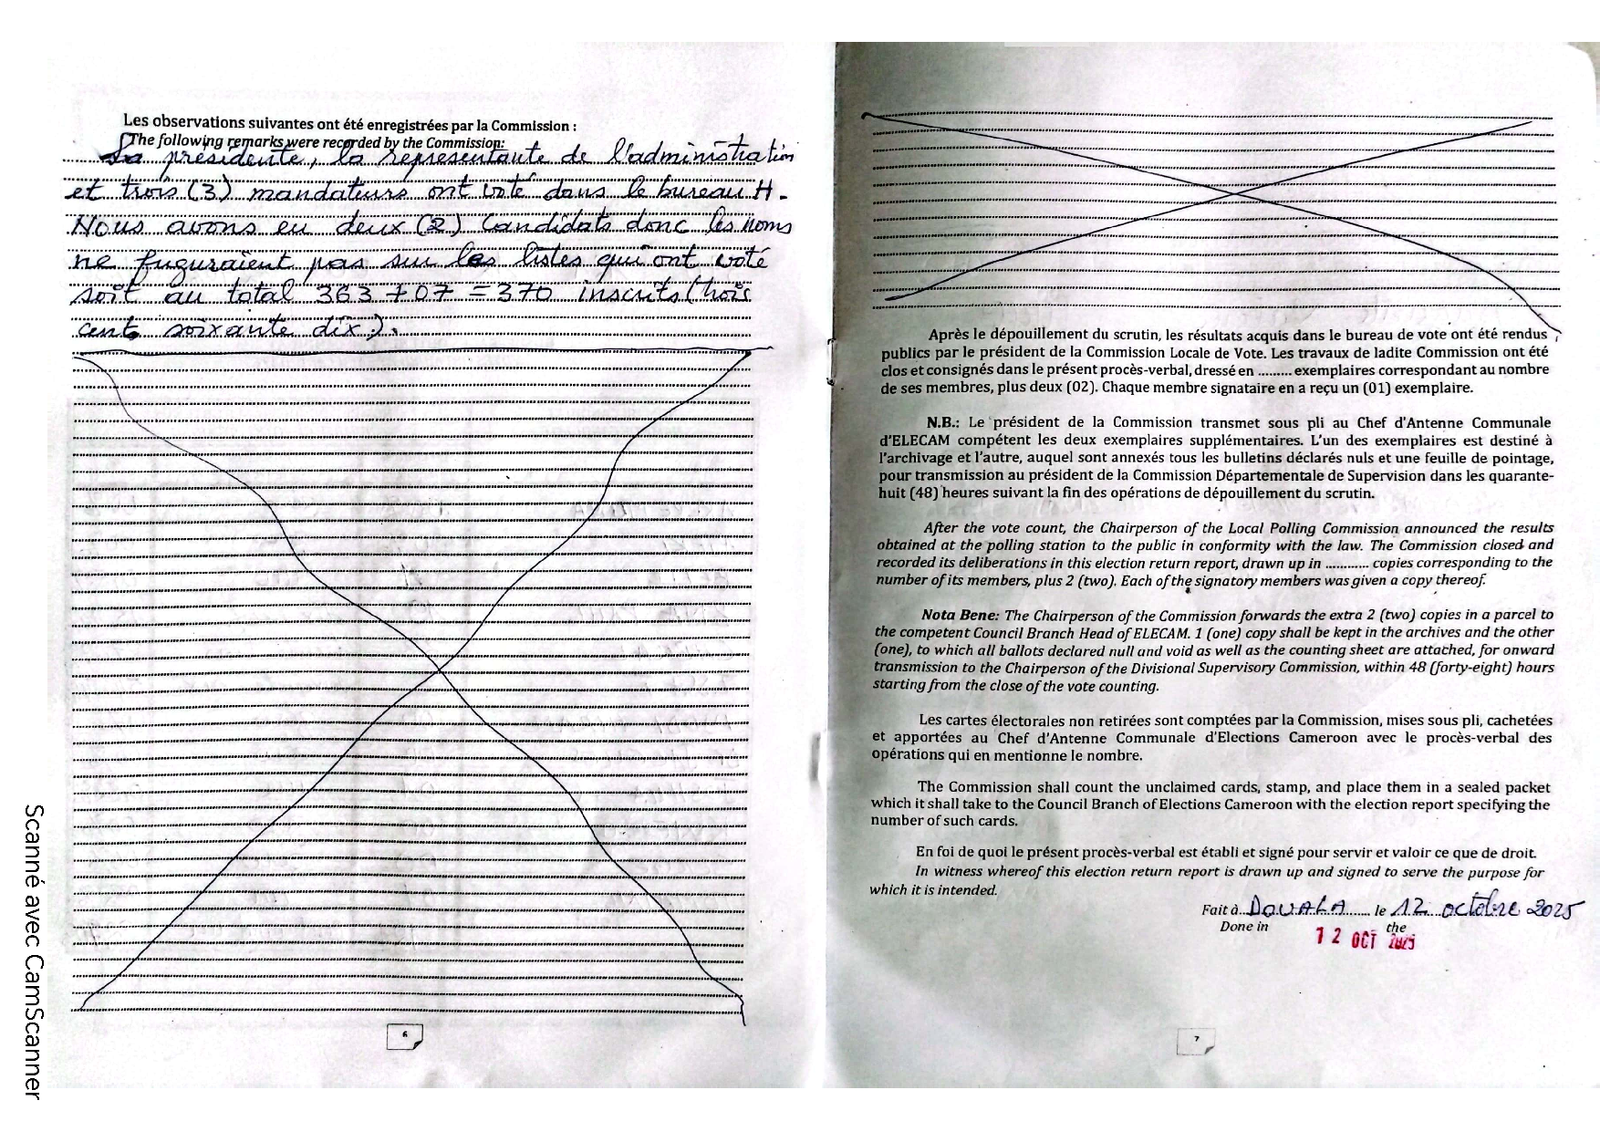 Les observations suivantes ont été enregistrées par la Commission :
The following remarks were recorded by the Commission:
La présidente, la représentante de l'administration
et trois (3) mandaturs ont voté dans le bureau H.
Nous avons eu deux (2) candidats donc les noms
ne fuguraient pas sur les listes qui ont voté
soit au total 363 + 07 = 370 inscrits (trois
cent soixante dix).
6
Après le dépouillement du scrutin, les résultats acquis dans le bureau de vote ont été rendus
publics par le président de la Commission Locale de Vote. Les travaux de ladite Commission ont été
clos et consignés dans le présent procès-verbal, dressé en ......... exemplaires correspondant au nombre
de ses membres, plus deux (02). Chaque membre signataire en a reçu un (01) exemplaire.
N.B.: Le président de la Commission transmet sous pli au Chef d'Antenne Communale
d'ELECAM compétent les deux exemplaires supplémentaires. L'un des exemplaires est destiné à
l'archivage et l'autre, auquel sont annexés tous les bulletins déclarés nuls et une feuille de pointage,
pour transmission au président de la Commission Départementale de Supervision dans les quarante-
huit (48) heures suivant la fin des opérations de dépouillement du scrutin.
After the vote count, the Chairperson of the Local Polling Commission announced the results
obtained at the polling station to the public in conformity with the law. The Commission closed and
recorded its deliberations in this election return report, drawn up in ............ copies corresponding to the
number of its members, plus 2 (two). Each of the signatory members was given a copy thereof.
Nota Bene: The Chairperson of the Commission forwards the extra 2 (two) copies in a parcel to
the competent Council Branch Head of ELECAM. 1 (one) copy shall be kept in the archives and the other
(one), to which all ballots declared null and void as well as the counting sheet are attached, for onward
transmission to the Chairperson of the Divisional Supervisory Commission, within 48 (forty-eight) hours
starting from the close of the vote counting.
Les cartes électorales non retirées sont comptées par la Commission, mises sous pli, cachetées
et apportées au Chef d'Antenne Communale d'Elections Cameroon avec le procès-verbal des
opérations qui en mentionne le nombre.
The Commission shall count the unclaimed cards, stamp, and place them in a sealed packet
which it shall take to the Council Branch of Elections Cameroon with the election report specifying the
number of such cards.
En foi de quoi le présent procès-verbal est établi et signé pour servir et valoir ce que de droit.
In witness whereof this election return report is drawn up and signed to serve the purpose for
which it is intended.
Fait à DOUALA le 12 octobre 2025
Done in the
12 OCT 2025
7
Scanné avec CamScanner